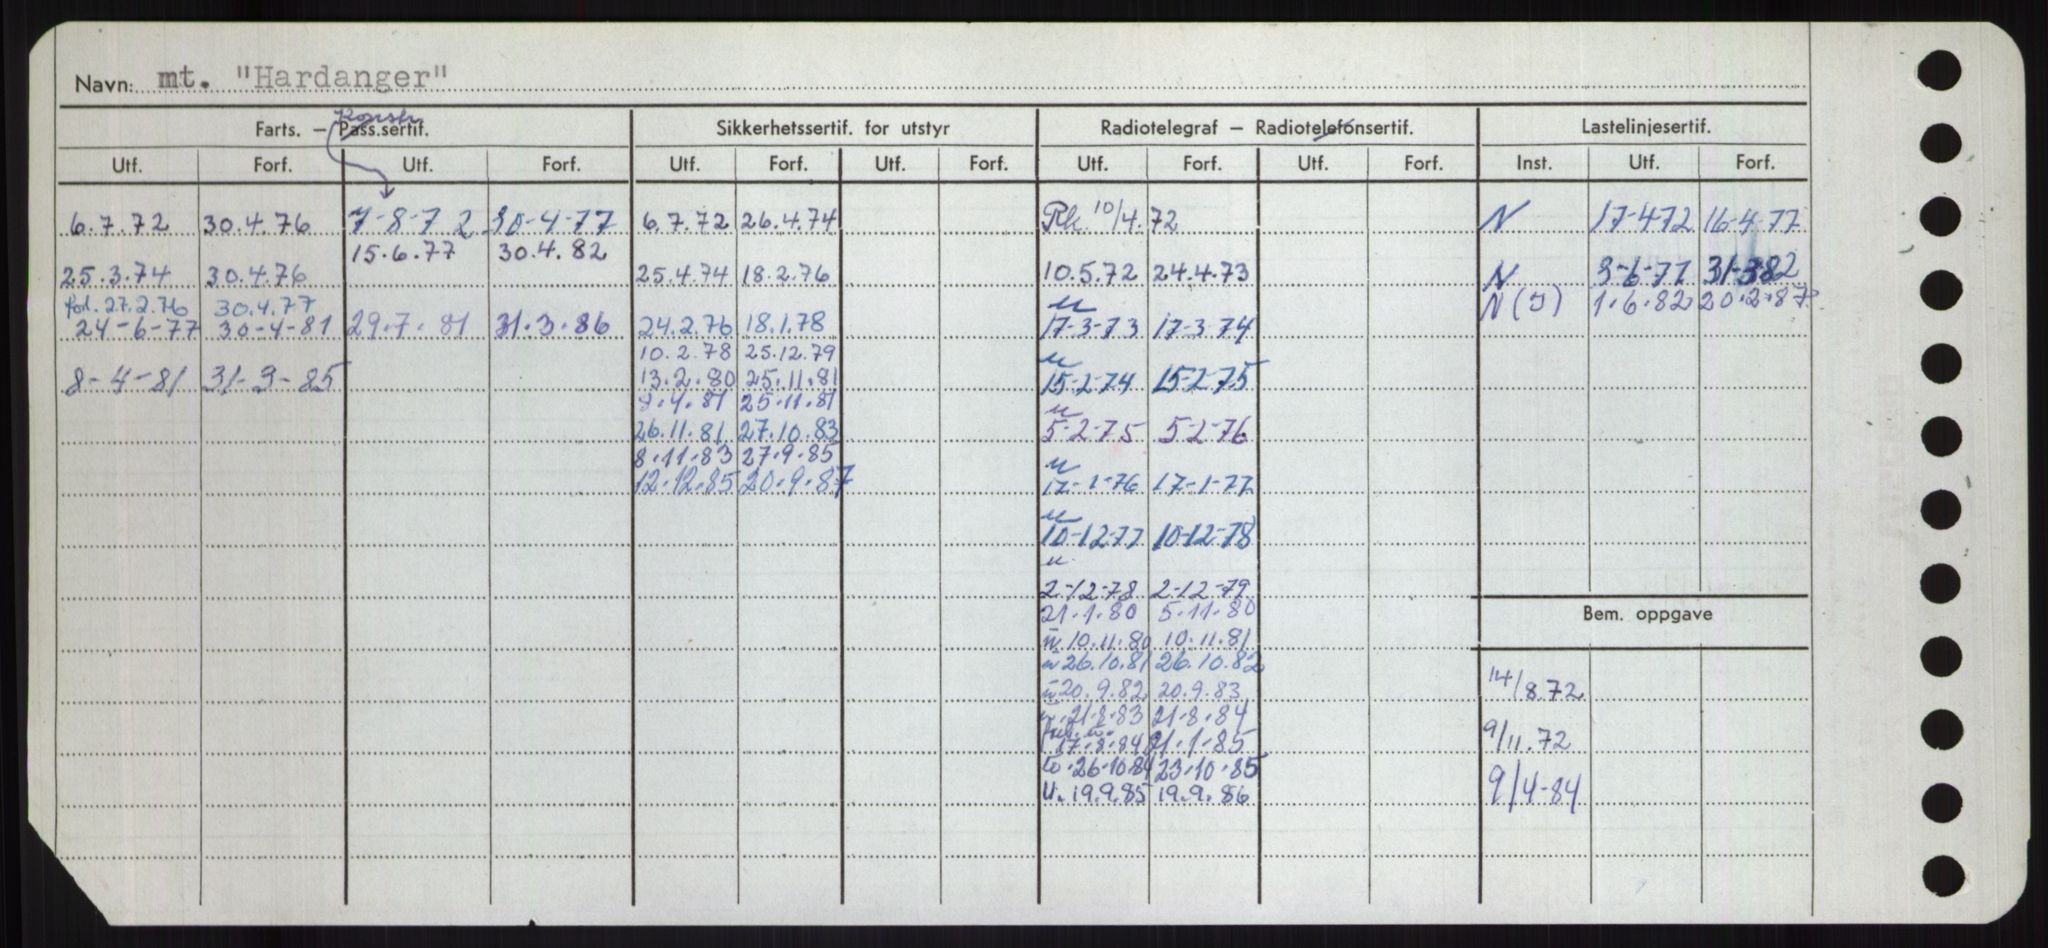 Navn: mt. "Hardanger"
Konstr.
Farts. – Pass.sertif. Sikkerhetssertif. for utstyr Radiotelegraf – Radiotelefonsertif. Lastelinjesertif.
Utf. Forf. Utf. Forf. Utf. Forf. Utf. Forf. Utf. Forf. Utf. Forf. Inst. Utf. Forf.
6.7.72 30.4.76 7-8-72 30-4-77 6.7.72 26.4.74 Rk. 10/4.72 N 17-4-72 16-4-77
15.6.77 30.4.82
25.3.74 30.4.76 25.4.74 18.2.76 10.5.72 24.4.73 N 3-6-77 31-3-82
fol. 27.2.76 30.4.77 u N(J) 1.6.82 20.2.87
24-6-77 30-4-81 29.7.81 31.3.86 24.2.76 18.1.78 17-3-73 17-3-74
10.2.78 25.12.79 u
8-4-81 31-3-85 13.2.80 25.11.81 15-2-74 15-2-75
.4.81 25.11.81 u
26.11.81 27.10.83 5-2-75 5-2-76
8.11.83 27.9.85 u
12.12.85 20.9.87 17-1-76 17-1-77
u
10-12-77 10-12-78
u
2-12-78 2-12-79
21.1.80 5.11.80 Bem. oppgave
u 10.11.80 10.11.81
u 26.10.81 26.10.82
u 20.9.82 20.9.83 14/8.72
u 21.8.83 21.8.84
u 9/11.72
17.8.84 21.1.85
to. 26.10.84 23.10.85
u. 19.9.85 19.9.86 9/4-84